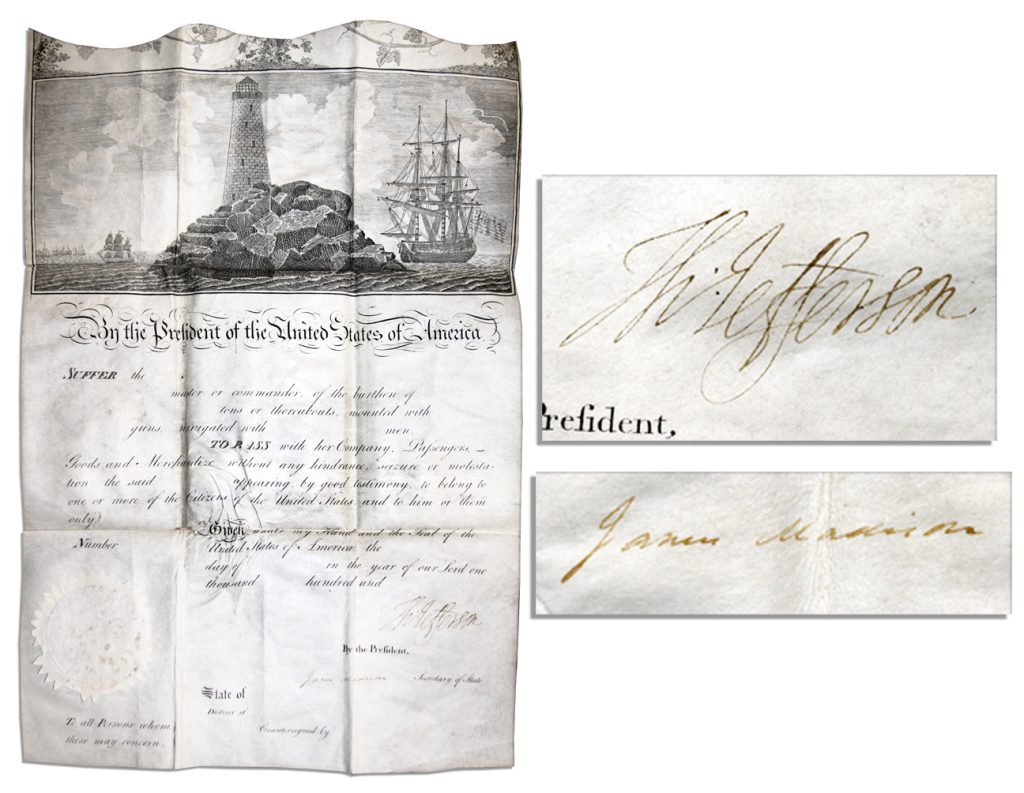 By the President of the United States of America
SUFFER the
master or commander, of the burthen of
tons or thereabouts, mounted with
guns, navigated with men,
TO PASS with her Company, Passengers,
Goods and Merchandize, without any hindrance, seizure or molesta-
tion the said appearing by good testimony, to belong to
one or more of the Citizens of the United States, and to him or them
only.
Given under my Hand and the Seal of the
United States of America the
day of in the year of our Lord one
thousand hundred and
Number
Th: Jefferson
By the Preſident,
James Madison Secretary of State
State of
District of
Countersigned by
To all Persons whom
these may concern.
Th: Jefferson.
Preſident,
James Madison